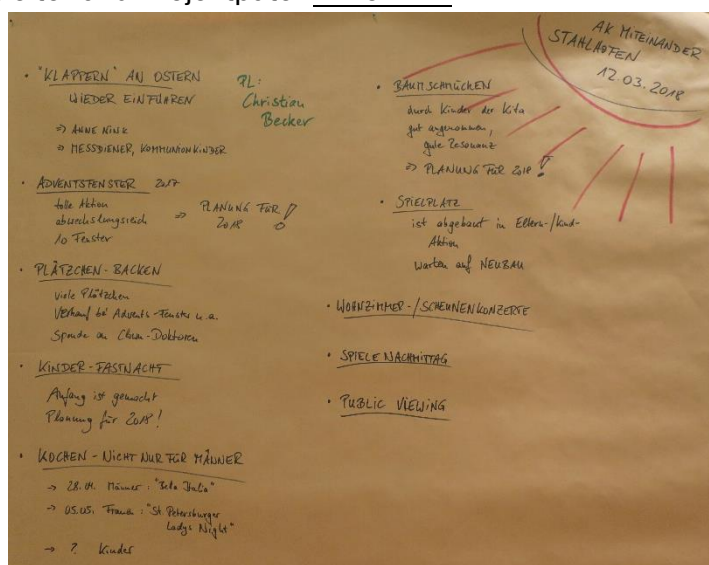 AK MITEINANDER
STAHLHOFEN
12.03.2018
• "KLAPPERN" AN OSTERN
WIEDER EINFÜHREN
=> ANNE NINK
=> MESSDIENER, KOMMUNIONKINDER
PL:
Christian
Becker
• ADVENTSFENSTER 2017
tolle Aktion
abwechslungsreich => PLANUNG FÜR
2018 !
10 Fenster
• PLÄTZCHEN-BACKEN
viele Plätzchen
Verkauf bei Advents-Fenster u.a.
Spende an Clown-Doktoren
• KINDER-FASTNACHT
Anfang ist gemacht
Planung für 2018!
• KOCHEN - NICHT NUR FÜR MÄNNER
-> 28.04. Männer: "Bella Italia"
-> 05.05. Frauen: "St. Petersburger
Ladys Night"
-> ? Kinder
• BAUMSCHMÜCKEN
durch Kinder der Kita
gut angenommen,
gute Resonanz
=> PLANUNG FÜR 2018 !
• SPIELPLATZ
ist abgebaut in Eltern-/Kind-
Aktion
warten auf NEUBAU
• WOHNZIMMER-/SCHEUNENKONZERTE
• SPIELENACHMITTAG
• PUBLIC VIEWING